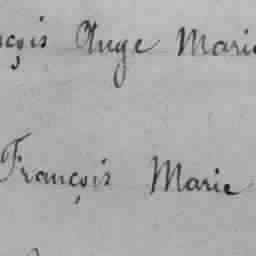 çois Ange Marie
François Marie